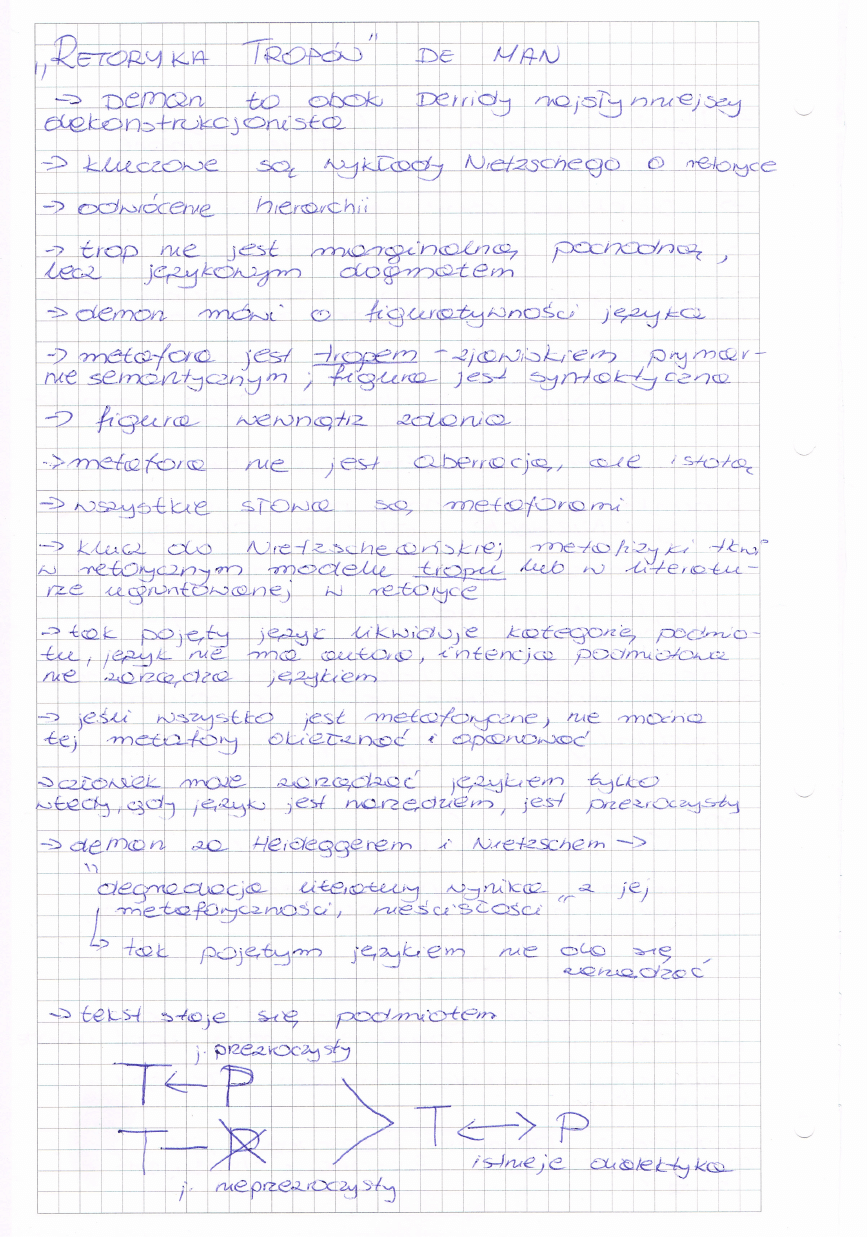 „RETORYKA TROPÓW” DE MAN
→ Deman to obok Derridy najsłynniejszy
dekonstrukcjonista
→ kluczowe są wykłady Nietzschego o retoryce
→ odwrócenie hierarchii
→ trop nie jest marginalną pochodną,
lecz językowym dogmatem
→ deman mówi o figuratywności języka
→ metafora jest tropem - zjawiskiem prymar-
nie semantycznym; figura jest syntaktyczna
→ figura wewnątrz zdania
→ metafora nie jest aberracją, ale istotą
→ wszystkie słowa są metaforami
→ klucz do Nietzscheańskiej metafizyki tkwi
w retorycznym modelu tropu lub w literatu-
rze ugruntowanej w retoryce
→ tak pojęty język likwiduje kategorię podmio-
tu, język nie ma autora, intencja podmiotowa
nie zarządza językiem
→ jeśli wszystko jest metaforyczne, nie można
tej metafory okiełznać i opanować
→ człowiek może zarządzać językiem tylko
wtedy, gdy język jest narzędziem, jest przezroczysty
→ deman za Heideggerem i Nietzschem →
"degradacja literatury wynika z jej
metaforyczności, nieścisłości"
↳ tak pojętym językiem nie da się
zarządzać
→ tekst staje się podmiotem
j. przezroczysty
T ← P
T — P
T ↔ P
istnieje dialektyka
j. nieprzezroczysty